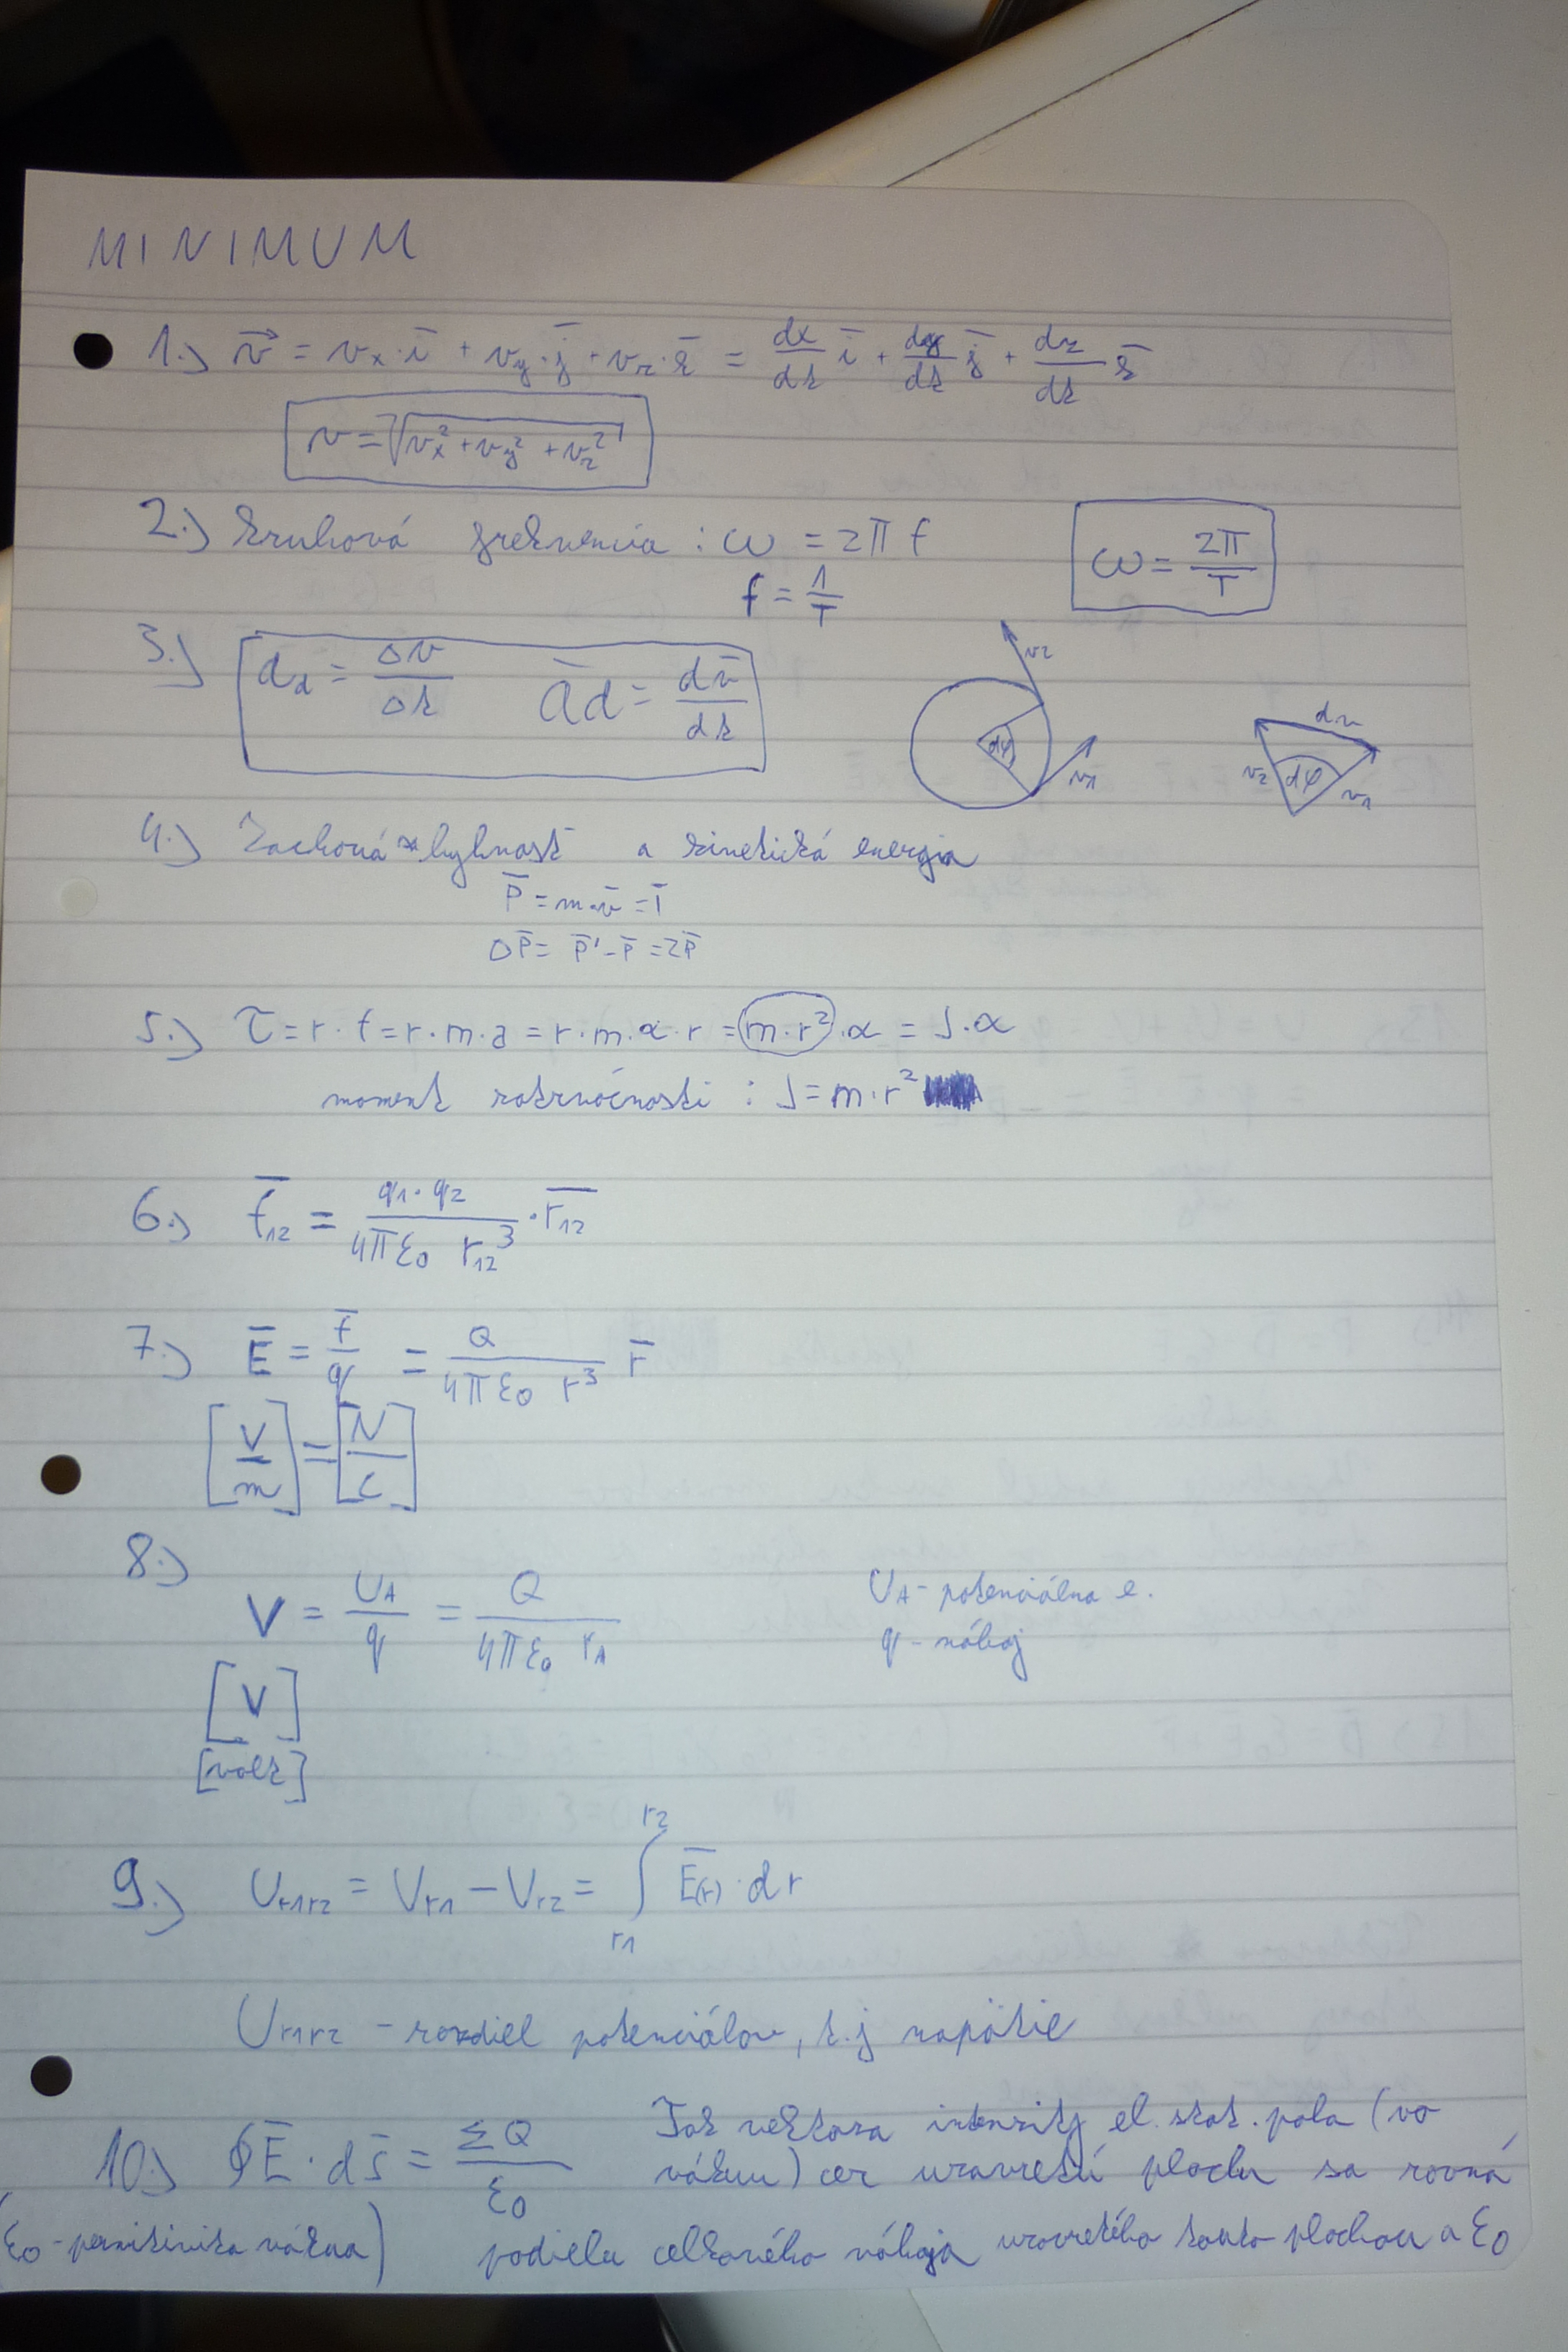 MINIMUM
1.) v⃗ = vx·i̅ + vy·j̅ + vz·k̅ = dx/dt i̅ + dy/dt j̅ + dz/dt k̅
v = √(vx² + vy² + vz²)
2.) kruhová frekvencia : ω = 2π f
ω = 2π/T
f = 1/T
3.) ad = Δv/Δt a̅d = dv̅/dt
v2
dφ
v1
dv
v2 dφ v1
4.) Zachová hybnosť a kinetická energia
P̅ = m·v̅ = I̅
ΔP̅ = P̅' - P̅ = 2P̅
5.) τ = r·f = r·m·a = r·m·α·r = m·r²·α = J·α
moment zotrvačnosti : J = m·r²
6.) f̅12 = q1·q2/4πε0 r12³ · r̅12
7.) E̅ = f̅/q = Q/4πε0 r³ r̅
[V/m] = [N/C]
8.)
V = UA/q = Q/4πε0 rA
UA - potenciálna e.
q - náboj
[V]
[volt]
9.) Ur1r2 = Vr1 - Vr2 = ∫ r1 r2 E̅(r)·dr
Ur1r2 - rozdiel potenciálov, t.j napätie
10.) ∮E̅·ds̅ = ΣQ/ε0 Tok vektora intenzity el. stat. pola (vo
vákuu) cez uzavretú plochu sa rovná
(ε0 - permitivita vákua) podielu celkového náboja uzavretého touto plochou a ε0